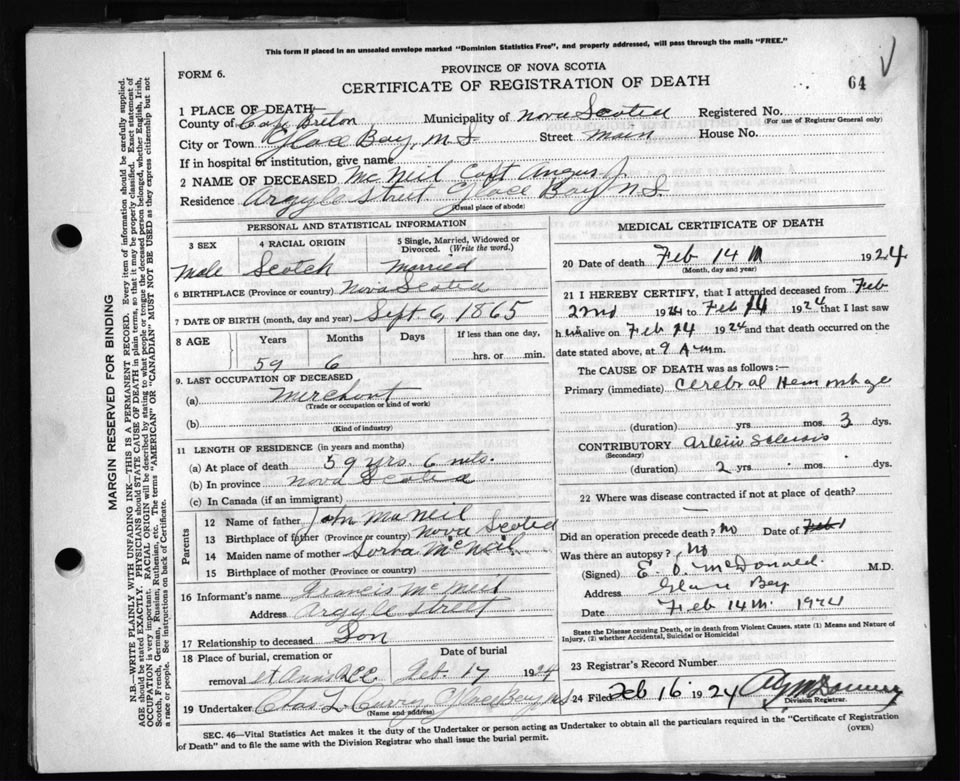 This form if placed in an unsealed envelope marked "Dominion Statistics Free", and properly addressed, will pass through the mails "FREE."
FORM 6.
PROVINCE OF NOVA SCOTIA
CERTIFICATE OF REGISTRATION OF DEATH
64
1 PLACE OF DEATH
County of Cape Breton Municipality of Nova Scotia Registered No.
(For use of Registrar General only)
City or Town Glace Bay, N.S Street Main House No.
If in hospital or institution, give name
2 NAME OF DECEASED Mc Neil Capt Angus J.
Residence Argyle Street Glace Bay N.S.
(Usual place of abode)
PERSONAL AND STATISTICAL INFORMATION
3 SEX 4 RACIAL ORIGIN 5 Single, Married, Widowed or Divorced. (Write the word.)
Male Scotch Married
6 BIRTHPLACE (Province or country) Nova Scotia
7 DATE OF BIRTH (month, day and year) Sept 6, 1865
8 AGE Years Months Days If less than one day,
59 6 hrs. or min.
9. LAST OCCUPATION OF DECEASED
(a) Merchant
(Trade or occupation or kind of work)
(b)
(Kind of industry)
11 LENGTH OF RESIDENCE (in years and months)
(a) At place of death 59 yrs. 6 mts.
(b) In province Nova Scotia
(c) In Canada (if an immigrant)
Parents
12 Name of father John MacNeil
13 Birthplace of father (Province or country) Nova Scotia
14 Maiden name of mother McNeil
15 Birthplace of mother (Province or country)
16 Informant's name Francis McNeil
Address Argyle Street
17 Relationship to deceased Son
18 Place of burial, cremation or removal St Anns Date of burial Feb. 17 1924
19 Undertaker Chas L Curry Glace Bay NS
(Name and address)
MEDICAL CERTIFICATE OF DEATH
20 Date of death Feb 14th 1924
(Month, day and year)
21 I HEREBY CERTIFY, that I attended deceased from Feb
2nd 1924 to Feb 14 1924 that I last saw
him alive on Feb 14 1924 and that death occurred on the
date stated above, at 9 A m.
The CAUSE OF DEATH was as follows:—
Primary (immediate) Cerebral Hemorrhage
(duration) yrs mos. 3 dys.
CONTRIBUTORY Arterio Sclerosis
(Secondary)
(duration) 2 yrs mos. dys.
22 Where was disease contracted if not at place of death?
—
Did an operation precede death? No Date of Feb 1
Was there an autopsy? No
(Signed) E. O. McDonald. M.D.
Address Glace Bay
Date Feb 14th. 1924
State the Disease causing Death, or in death from Violent Causes, state (1) Means and Nature of Injury, (2) whether Accidental, Suicidal or Homicidal
23 Registrar's Record Number
24 Filed Feb 16 1924
Division Registrar.
SEC. 46—Vital Statistics Act makes it the duty of the Undertaker or person acting as Undertaker to obtain all the particulars required in the "Certificate of Registration of Death" and to file the same with the Division Registrar who shall issue the burial permit.
(OVER)
MARGIN RESERVED FOR BINDING
N.B.—WRITE PLAINLY WITH UNFADING INK—THIS IS A PERMANENT RECORD. Every item of information should be carefully supplied.
AGE should be stated EXACTLY. PHYSICIANS should STATE CAUSE OF DEATH in plain terms, so that it may be properly classified. Exact statement of
OCCUPATION is very important. RACIAL ORIGIN will be described by stating to what people or tongue the deceased person belonged, whether English, Irish,
Scotch, French, German, Russian, Ruthenian, etc. The terms "AMERICAN" OR "CANADIAN" MUST NOT BE USED as they express citizenship but not
a race or people. See instructions on back of Certificate.